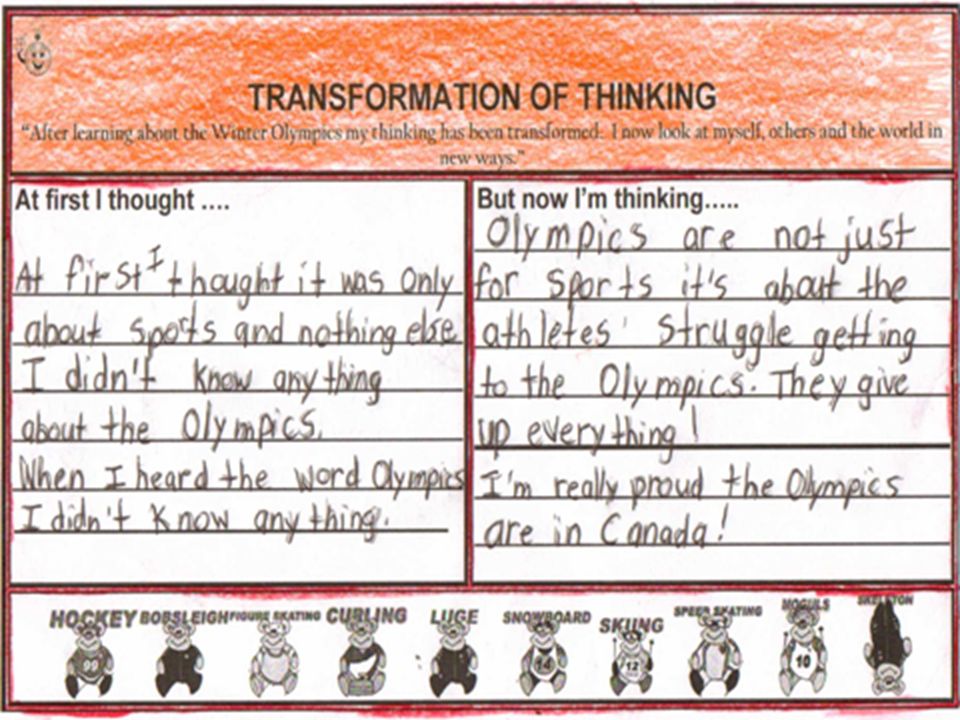 TRANSFORMATION OF THINKING
"After learning about the Winter Olympics my thinking has been transformed. I now look at myself, others and the world in
new ways."
At first I thought ....
At first I thought it was only
about sports and nothing else
I didn't know anything
about the Olympics.
When I heard the word Olympics
I didn't know anything.
But now I'm thinking.....
Olympics are not just
for sports it's about the
athletes' struggle getting
to the Olympics. They give
up everything!
I'm really proud the Olympics
are in Canada!
HOCKEY BOBSLEIGH FIGURE SKATING CURLING LUGE SNOWBOARD SKIING SPEED SKATING MOGULS SKELETON
99 14 12 10